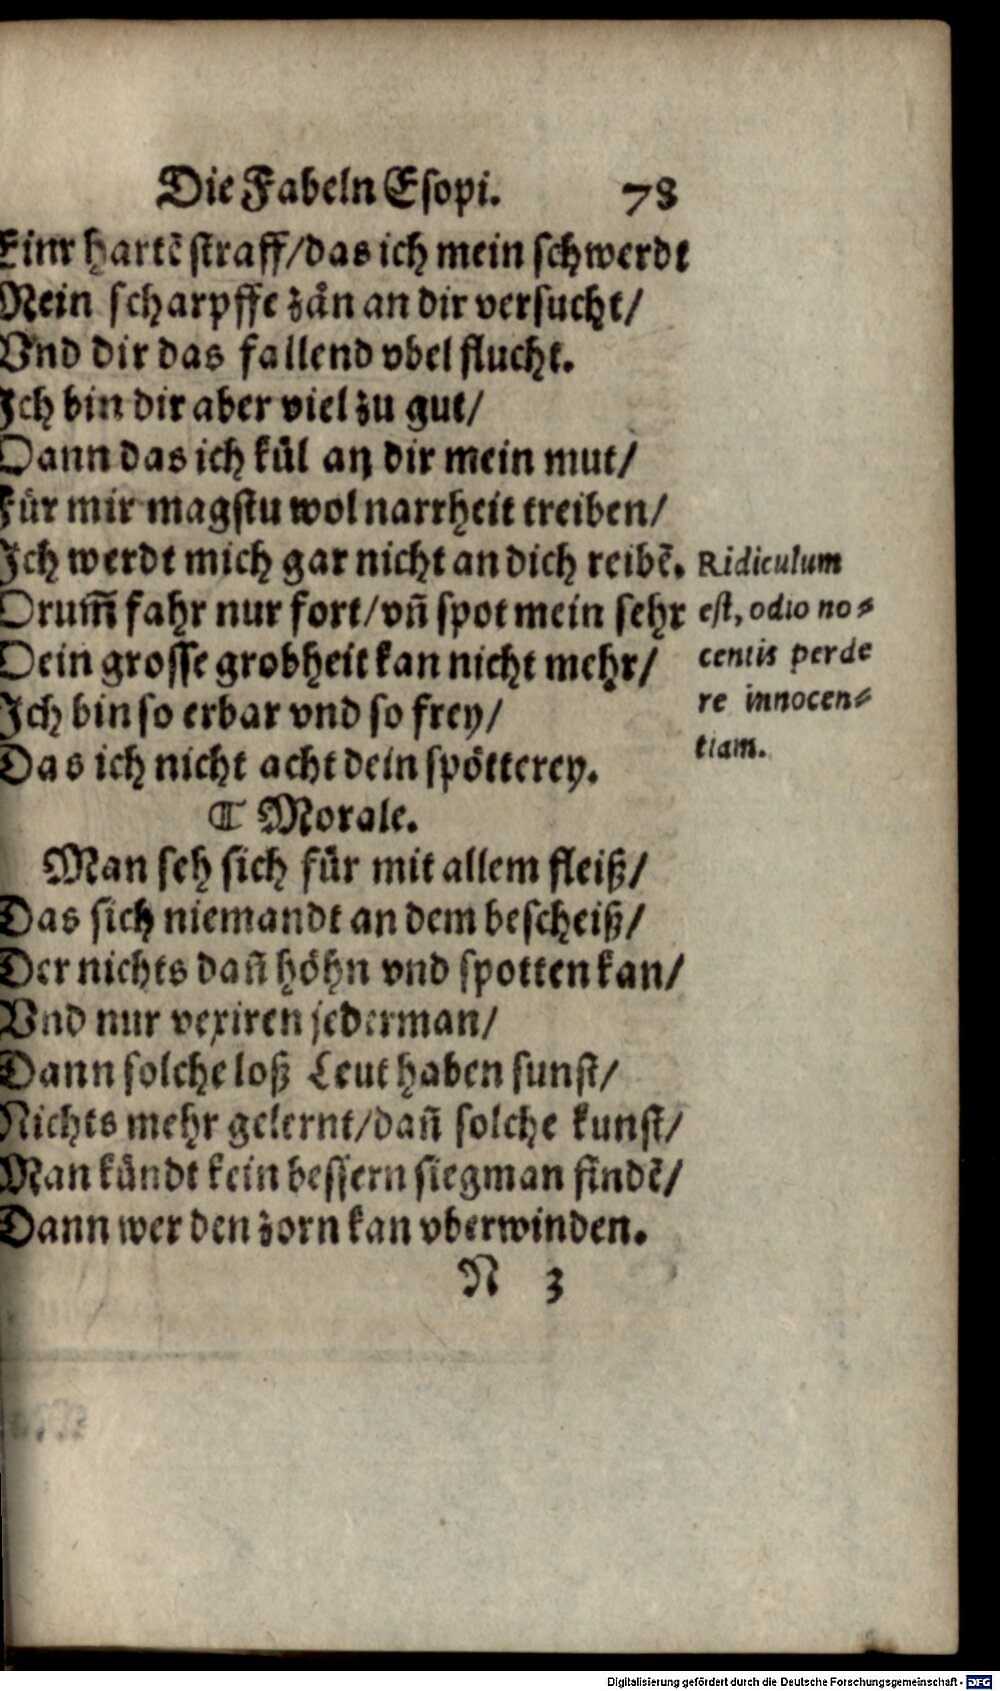 Die Fabeln Esopi. 78
Einr hartē straff/das ich mein schwerdt
Mein scharpffe zån an dir versucht/
Vnd dir das fallend vbel flucht.
Ich bin dir aber viel zu gut/
Dann das ich kül an dir mein mut/
Für mir magstu wol narrheit treiben/
Ich werdt mich gar nicht an dich reibē.
Drum̄ fahr nur fort/vn̄ spot mein sehr
Dein grosse grobheit kan nicht mehr/
Ich bin so erbar vnd so frey/
Das ich nicht acht dein spötterey.
Ridiculum
est, odio no-
centis perde
re innocen-
tiam.
☾ Morale.
Man seh sich für mit allem fleiß/
Das sich niemandt an dem bescheiß/
Der nichts dan̄ höhn vnd spotten kan/
Vnd nur vexiren jederman/
Dann solche loß Leut haben sunst/
Nichts mehr gelernt/dan̄ solche kunst/
Man kündt kein bessern siegman findē/
Dann wer den zorn kan vberwinden.
N 3
Digitalisierung gefördert durch die Deutsche Forschungsgemeinschaft - DFG